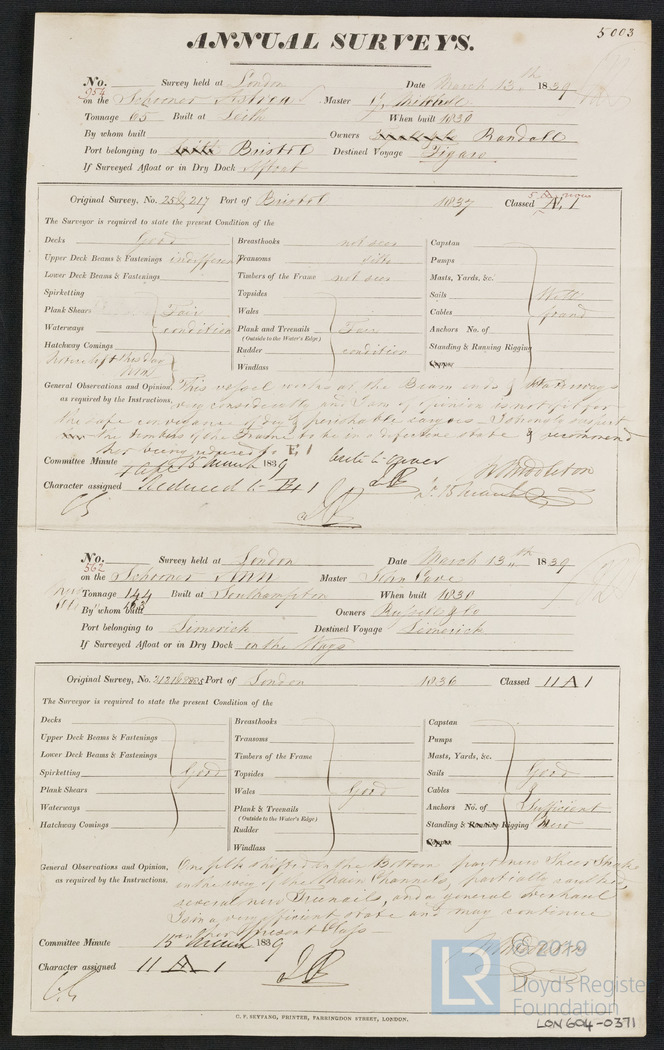 5003
ANNUAL SURVEYS.
No. 954 Survey held at London Date March 13th 1839
on the Schooner Astrea Master
Tonnage 65 Built at Leith When built 1830
By whom built Owners Randall
Port belonging to Bristol Destined Voyage Figaro
If Surveyed Afloat or in Dry Dock Afloat
Original Survey, No. 217 Port of Bristol 1837 Classed Æ 1
The Surveyor is required to state the present Condition of the
Decks Good Breasthooks not seen Capstan
Upper Deck Beams & Fastenings indifferent Transoms ditto Pumps
Lower Deck Beams & Fastenings Timbers of the Frame not seen Masts, Yards, &c.
Spirketting Topsides Sails Well
Plank Shears Fair Wales Cables found
Waterways condition Plank and Treenails Fair Anchors No. of
(Outside to the Water's Edge)
Hatchway Comings Rudder condition Standing & Running Rigging
Windlass
General Observations and Opinion, This vessel works at the Beam ends & Waterways
as required by the Instructions. very considerably and I am of opinion is not fit for
the safe conveyance of dry & perishable cargoes
the timbers of the Frame to be in a defective state & recommend
her being reduced to E 1
Committee Minute 15 March 1839 W Middleton
Character assigned Reduced to E 1
No. 562 Survey held at London Date March 13th 1839
on the Schooner Ann Master John
Tonnage 144 Built at Southampton When built 1830
By whom built Owners Russell & Co
Port belonging to Limerick Destined Voyage Limerick
If Surveyed Afloat or in Dry Dock on the Ways
Original Survey, No. Port of London 1836 Classed 11 A 1
The Surveyor is required to state the present Condition of the
Decks Breasthooks Capstan
Upper Deck Beams & Fastenings Transoms Pumps
Lower Deck Beams & Fastenings Timbers of the Frame Masts, Yards, &c.
Spirketting Good Topsides Sails Good
Plank Shears Wales Good Cables &
Waterways Plank & Treenails Anchors No. of Sufficient
(Outside to the Water's Edge)
Hatchway Comings Rudder Standing & Running Rigging New
Windlass
General Observations and Opinion, One plk shifted in the Bottom, part new Sheer Strake
as required by the Instructions. in the way of the Main Channels, partially caulked,
several new Treenails, and a general overhaul
Is in a very efficient state and may continue
in her present Class
Committee Minute 15 March 1839
Character assigned 11 A 1
C. F. SEYFANG, PRINTER, FARRINGDON STREET, LONDON.
LR © 2019
Lloyd's Register
Foundation
LON604-0371